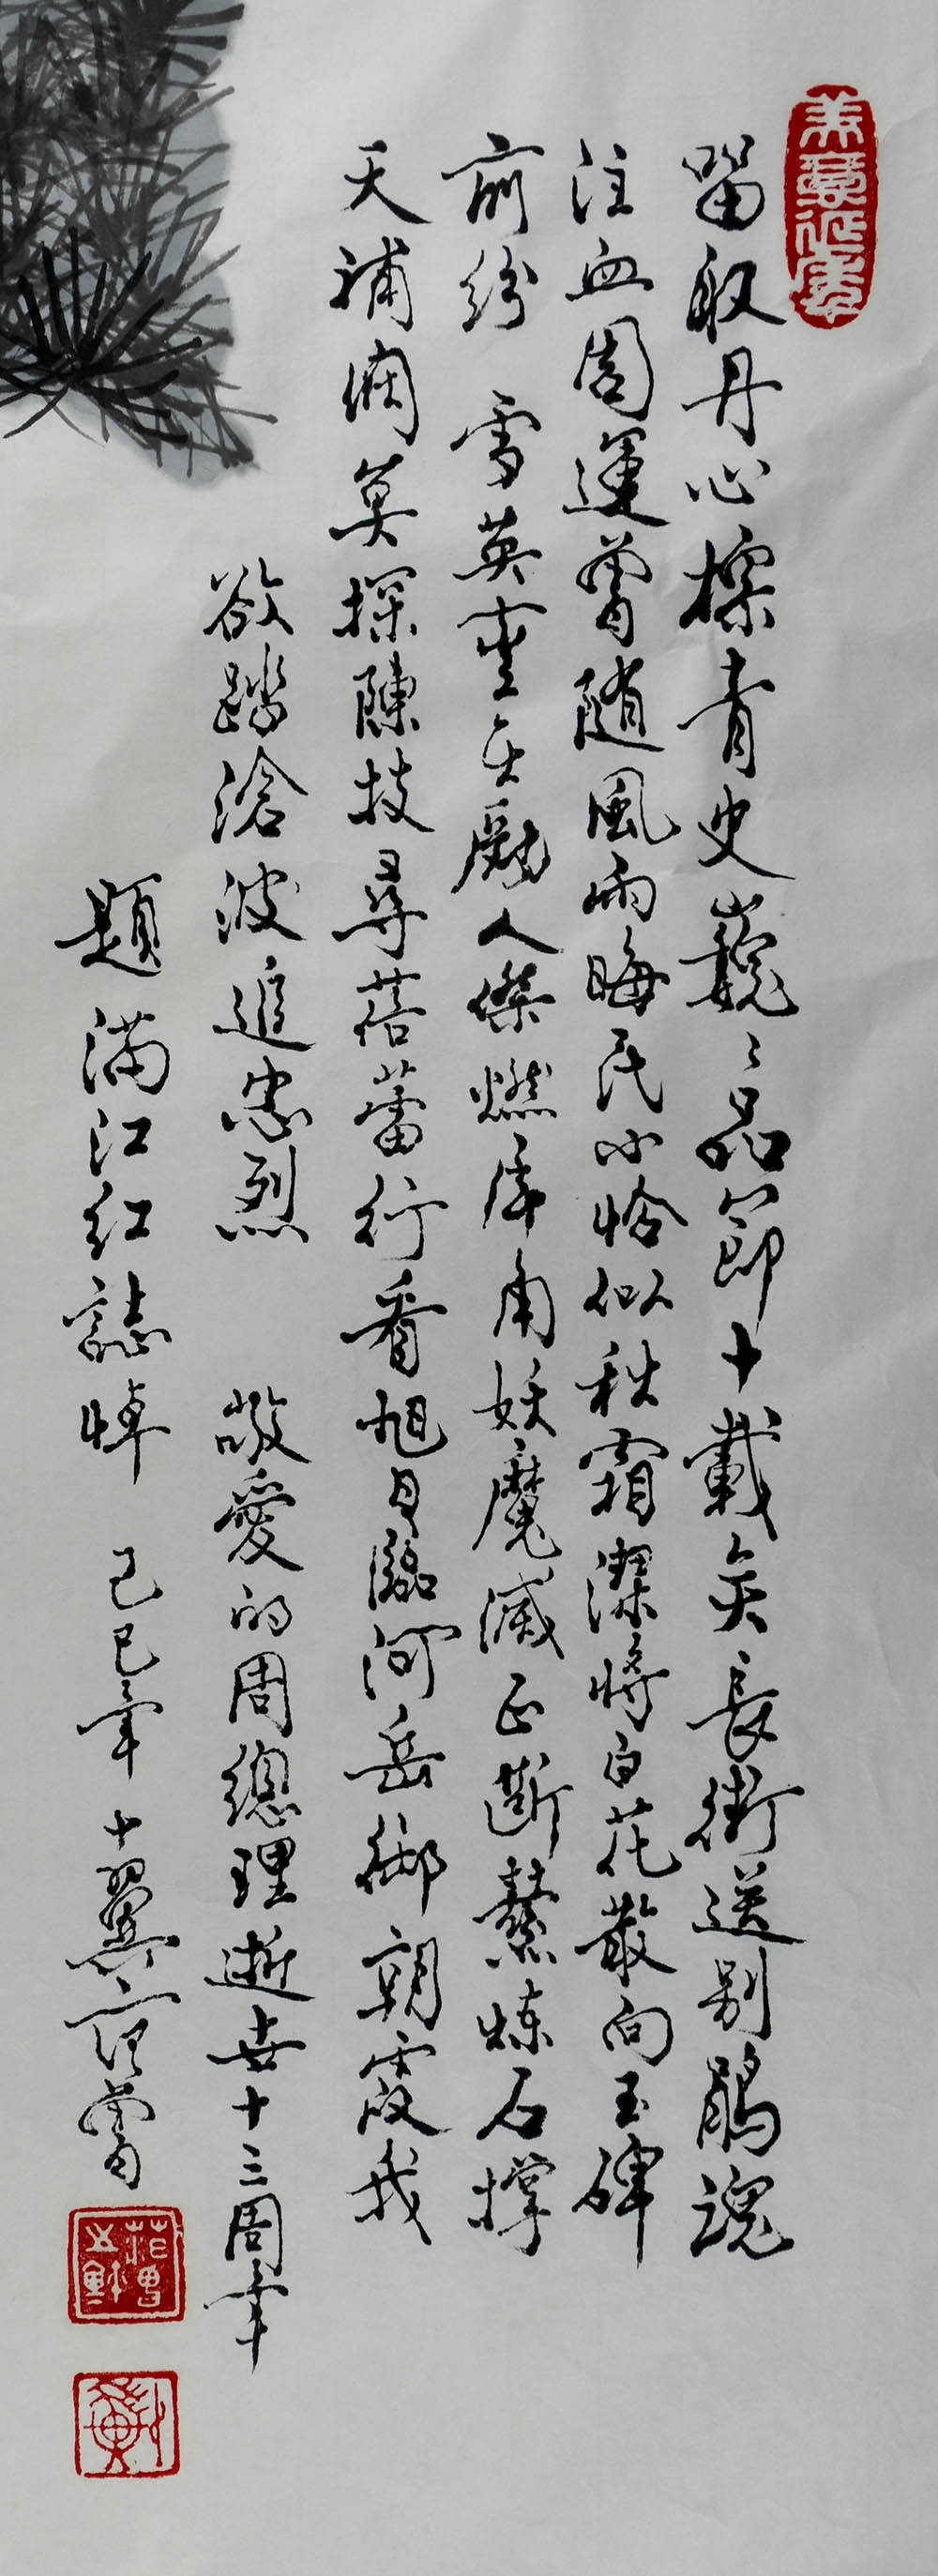 留取丹心探青史巍々品節十載矣長街送別鵑魂
注血周運曾隨風雨晦民心恰似秋霜潔將白花散向玉碑
前紛 雪英靈在勵人傑燃犀角妖魔滅正斷鰲煉石撐
天補闕莫探陳技尋蓓蕾行看旭日臨河岳御朝霞我
欲踏滄波追忠烈 敬愛的周總理逝世十三周年
題滿江紅誌悼 己巳年 十翼范曾